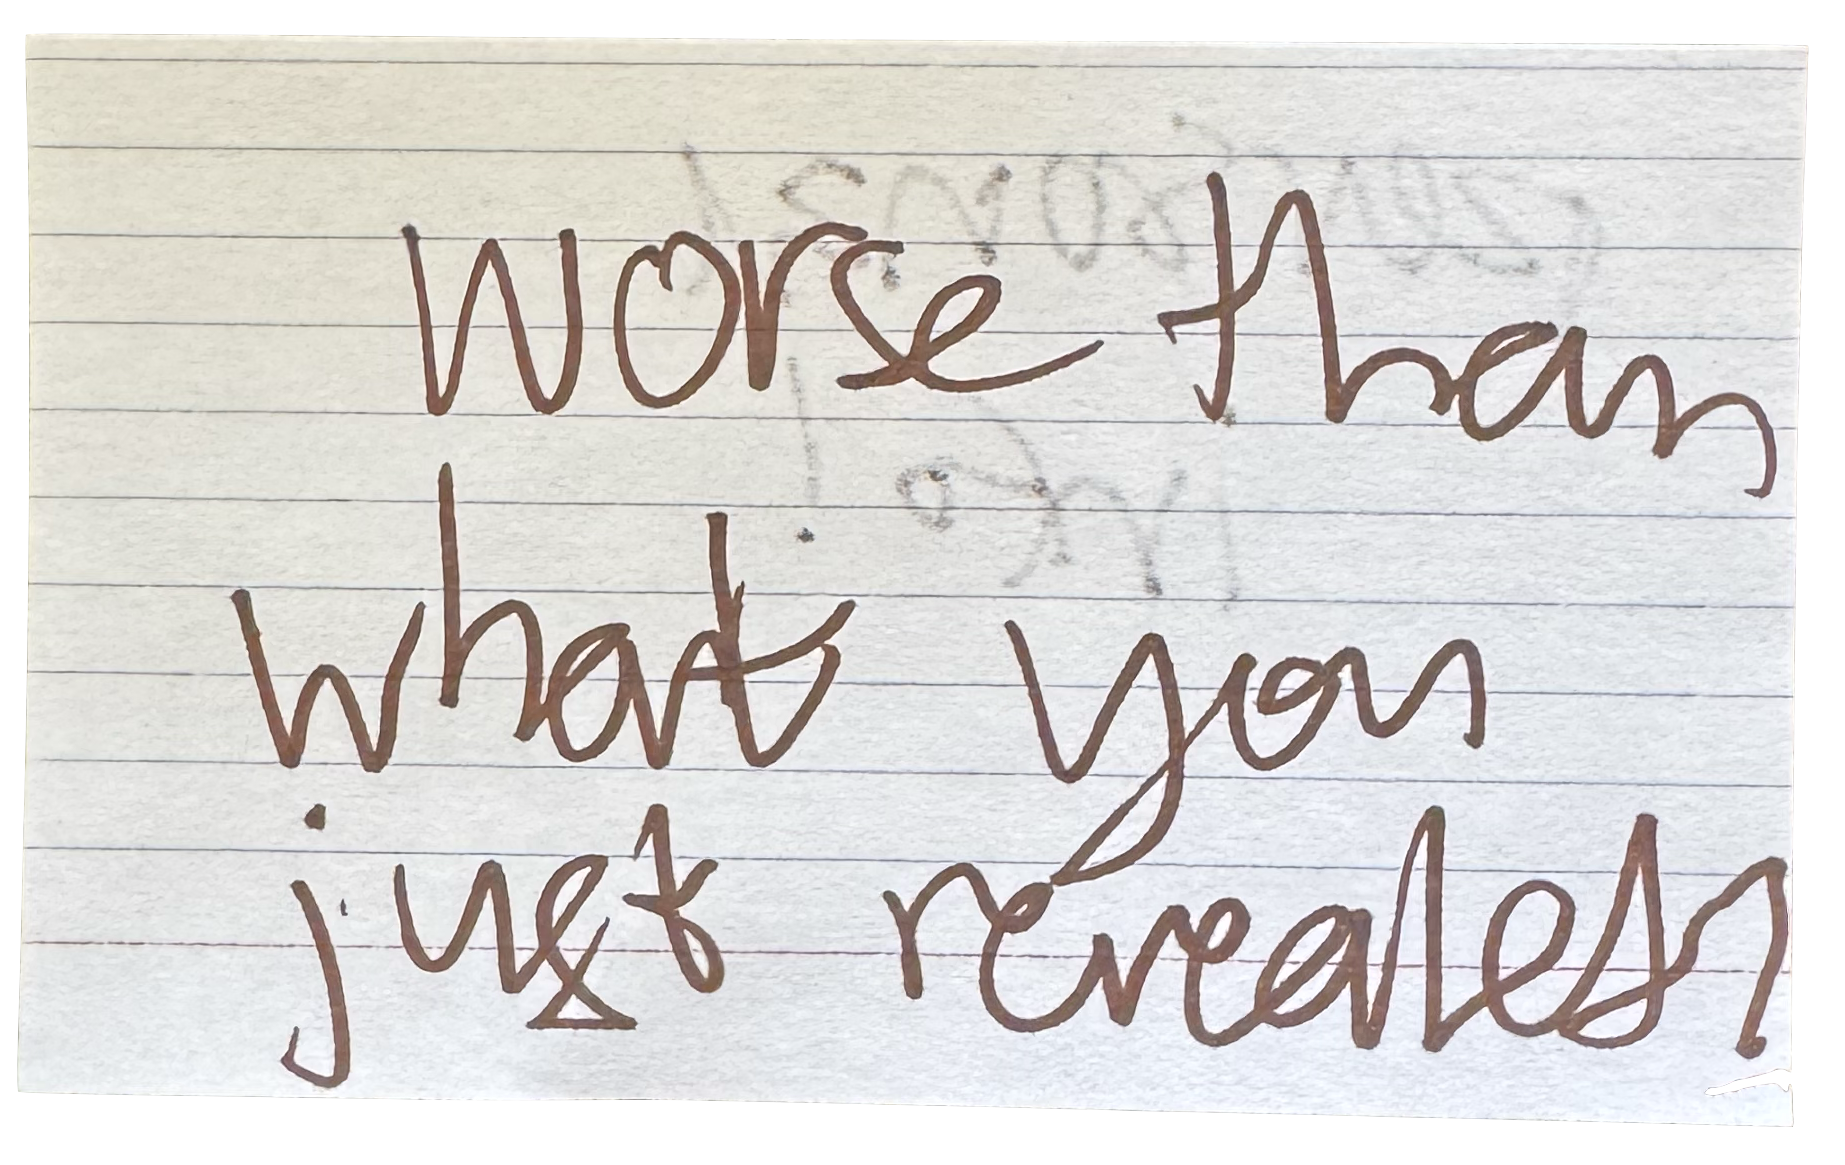 worse than
what you
just reveales?